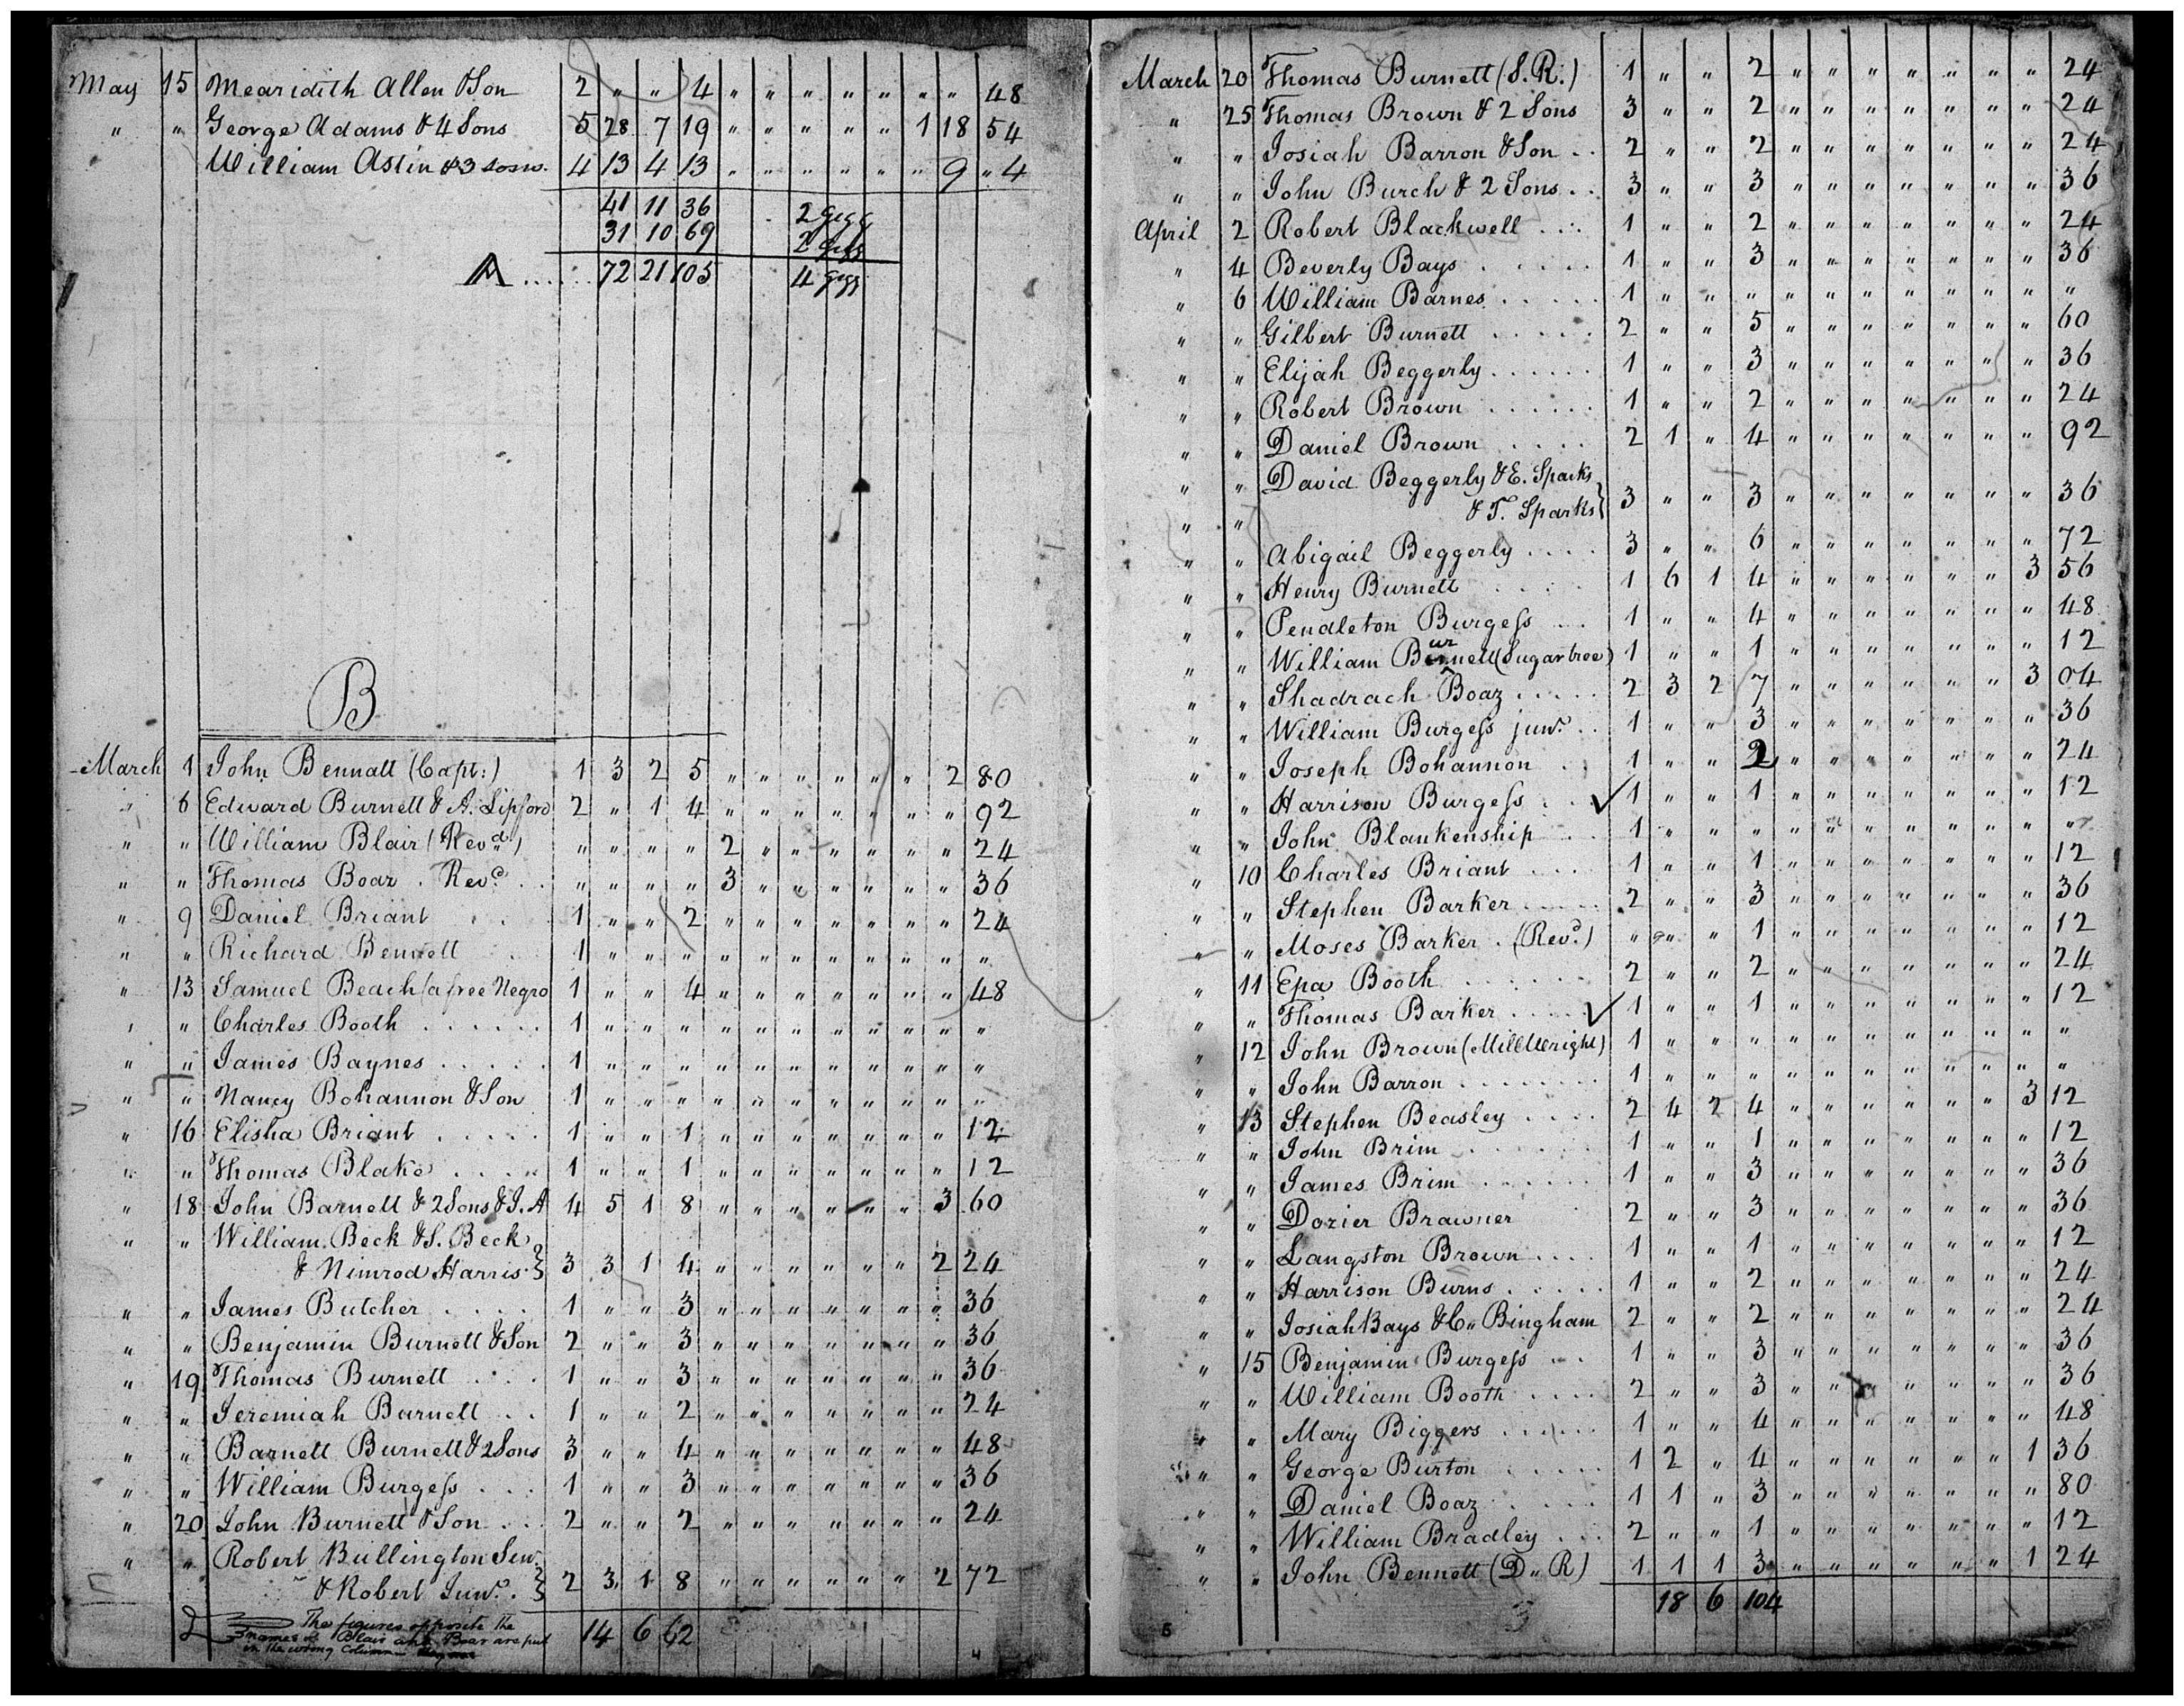 May 15 Mearidith Allen & Son 2 " " 4 " " " " " " " 48
" " George Adams & 4 Sons 5 28 7 19 " " " " " 1 18 54
William Astin & 3 sons. 4 13 4 13 " " " " " " 9 " 4
41 11 36 2 gigs
31 10 69 2 gigs
A..... 72 21 105 4 gigs
B
March 1 John Bennatt (Capt:) 1 3 2 5 " " " " " " 2 80
" 6 Edward Burnett & A. Lipford 2 " 1 4 " " " " " " " 92
" " William Blair (Revd.) " " " " 2 " " " " " " 24
" " Thomas Boaz . Revd. . . " " " " 3 " " " " " " 36
" 9 Daniel Briant 1 " " 2 " " " " " " " 24
" " Richard Bennett 1 " " " " " " " " " " "
" 13 Samuel Beach (a free Negro 1 " " 4 " " " " " " " 48
" " Charles Booth . . . . . . 1 " " " " " " " " " " "
" " James Baynes . . . . . 1 " " " " " " " " " " "
" " Nancy Bohannon & Son 1 " " " " " " " " " " "
" 16 Elisha Briant . . . . . 1 " " 1 " " " " " " " 12
" " Thomas Blake . . . . 1 " " 1 " " " " " " " 12
" 18 John Barnett & 2 Sons & J. A 4 5 1 8 " " " " " " 3 60
" " William Beck & S. Beck
& Nimrod Harris. } 3 3 1 4 " " " " " " 2 24
" " James Butcher . . . . 1 " " 3 " " " " " " " 36
" " Benjamin Burnett & Son 2 " " 3 " " " " " " " 36
" 19 Thomas Burnett . . . . 1 " " 3 " " " " " " " 36
" " Jeremiah Burnett . . 1 " " 2 " " " " " " " 24
" " Barnett Burnett & 2 Sons 3 " " 4 " " " " " " " 48
" " William Burgess . . . 1 " " 3 " " " " " " " 36
" 20 John Burnett & Son . . . 2 " " 2 " " " " " " " 24
" " Robert Bullington Sen.
& Robert Junr. . } 2 3 1 8 " " " " " " 2 72
The figures opposite the
names of Blair and Boaz are put
in the wrong Column
14 6 62
4
March 20 Thomas Burnett (S. R.) 1 " " 2 " " " " " " " 24
" 25 Thomas Brown & 2 Sons 3 " " 2 " " " " " " " 24
" " Josiah Barron & Son . . 2 " " 2 " " " " " " " 24
" " John Burch & 2 Sons . . 3 " " 3 " " " " " " " 36
April 2 Robert Blackwell . . . 1 " " 2 " " " " " " " 24
" 4 Beverly Bays . . . . . 1 " " 3 " " " " " " " 36
" 6 William Barnes . . . . . 1 " " " " " " " " " " "
" " Gilbert Burnett . . . . . 2 " " 5 " " " " " " " 60
" " Elijah Beggerly . . . . . . 1 " " 3 " " " " " " " 36
" " Robert Brown . . . . . . 1 " " 2 " " " " " " " 24
" " Daniel Brown . . . . 2 1 " 4 " " " " " " " 92
" " David Beggerly & E. Sparks
" " & T. Sparks } 3 " " 3 " " " " " " " 36
" " Abigail Beggerly . . . . 3 " " 6 " " " " " " " 72
" " Henry Burnett . . . . 1 6 1 4 " " " " " " 3 56
" " Pendleton Burgess . . . 1 " " 4 " " " " " " " 48
" " William Burnett (Sugartree) 1 " " 1 " " " " " " " 12
" " Shadrach Boaz . . . . . 2 3 2 7 " " " " " " 3 04
" " William Burgess junr. . . 1 " " 3 " " " " " " " 36
" " Joseph Bohannon . 1 " " 2 " " " " " " " 24
" " Harrison Burgess . . ✓ 1 " " 1 " " " " " " " 12
" " John Blankenship . . 1 " " " " " " " " " " "
" 10 Charles Briant . . . . 1 " " 1 " " " " " " " 12
" " Stephen Barker . . . . . 2 " " 3 " " " " " " " 36
" " Moses Barker . (Revd.) " " " 1 " " " " " " " 12
" 11 Epa Booth . . . . . . . 2 " " 2 " " " " " " " 24
" " Thomas Barker . . . . . ✓ 1 " " 1 " " " " " " " 12
" 12 John Brown (MillWright) 1 " " " " " " " " " " "
" " John Barron . . . . . . . . 1 " " " " " " " " " " "
" 13 Stephen Beasley . . . . 2 4 2 4 " " " " " " 3 12
" " John Brim . . . . . . 1 " " 1 " " " " " " " 12
" " James Brim . . . . . . 1 " " 3 " " " " " " " 36
" " Dozier Brawner 2 " " 3 " " " " " " " 36
" " Langston Brown . . . . 1 " " 1 " " " " " " " 12
" " Harrison Burns . . . . . 1 " " 2 " " " " " " " 24
" " Josiah Bays & C" Bingham 2 " " 2 " " " " " " " 24
" 15 Benjamin Burgess . . . 1 " " 3 " " " " " " " 36
" " William Booth . . . . 2 " " 3 " " " " " " " 36
" " Mary Biggers . . . . . . 1 " " 4 " " " " " " " 48
" " George Burton . . . . . 1 2 " 4 " " " " " " 1 36
" " Daniel Boaz . . . . . 1 1 " 3 " " " " " " " 80
" " William Bradley . . . 2 " " 1 " " " " " " " 12
" " John Bennett (D" R) 1 1 1 3 " " " " " " 1 24
18 6 104
5